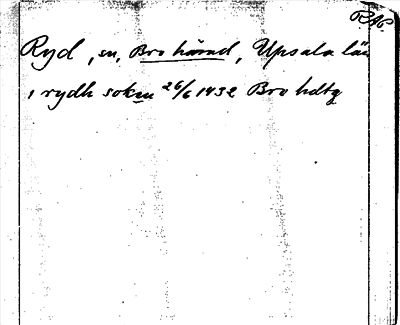 Ryd, sn, Bro härad, Upsala län
i rydh sokn 26/6 1432 Bro hdtg